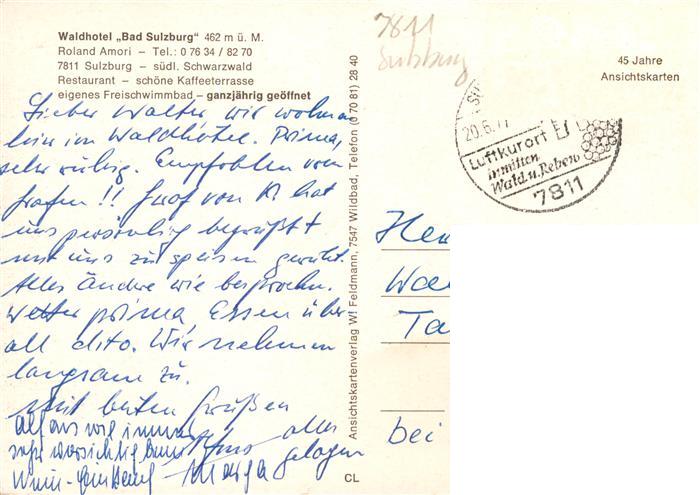 Waldhotel „Bad Sulzburg" 462 m ü. M.
Roland Amori – Tel.: 0 76 34 / 82 70
7811 Sulzburg – südl. Schwarzwald
Restaurant – schöne Kaffeeterrasse
eigenes Freischwimmbad – ganzjährig geöffnet
Lieber Walter, wir wohnen
hier im Waldhotel. Prima,
sehr ruhig. Empfohlen vom
Grafen!! Graf von K. hat
uns persönlich begrüßt
und mit uns zu speisen geruht.
Alles Andere wie besprochen.
Wetter prima Essen über
all dito. Wir nehmen
langsam zu.
Mit besten Grüßen
alles
gelogen
Ansichtskartenverlag W! Feldmann, 7547 Wildbad, Telefon (0 70 81) 28 40
CL
7811
Sulzburg
45 Jahre
Ansichtskarten
20.6.77
Luftkurort
inmitten
Wald u. Reben
7811
Her
Wa
Ta
bei